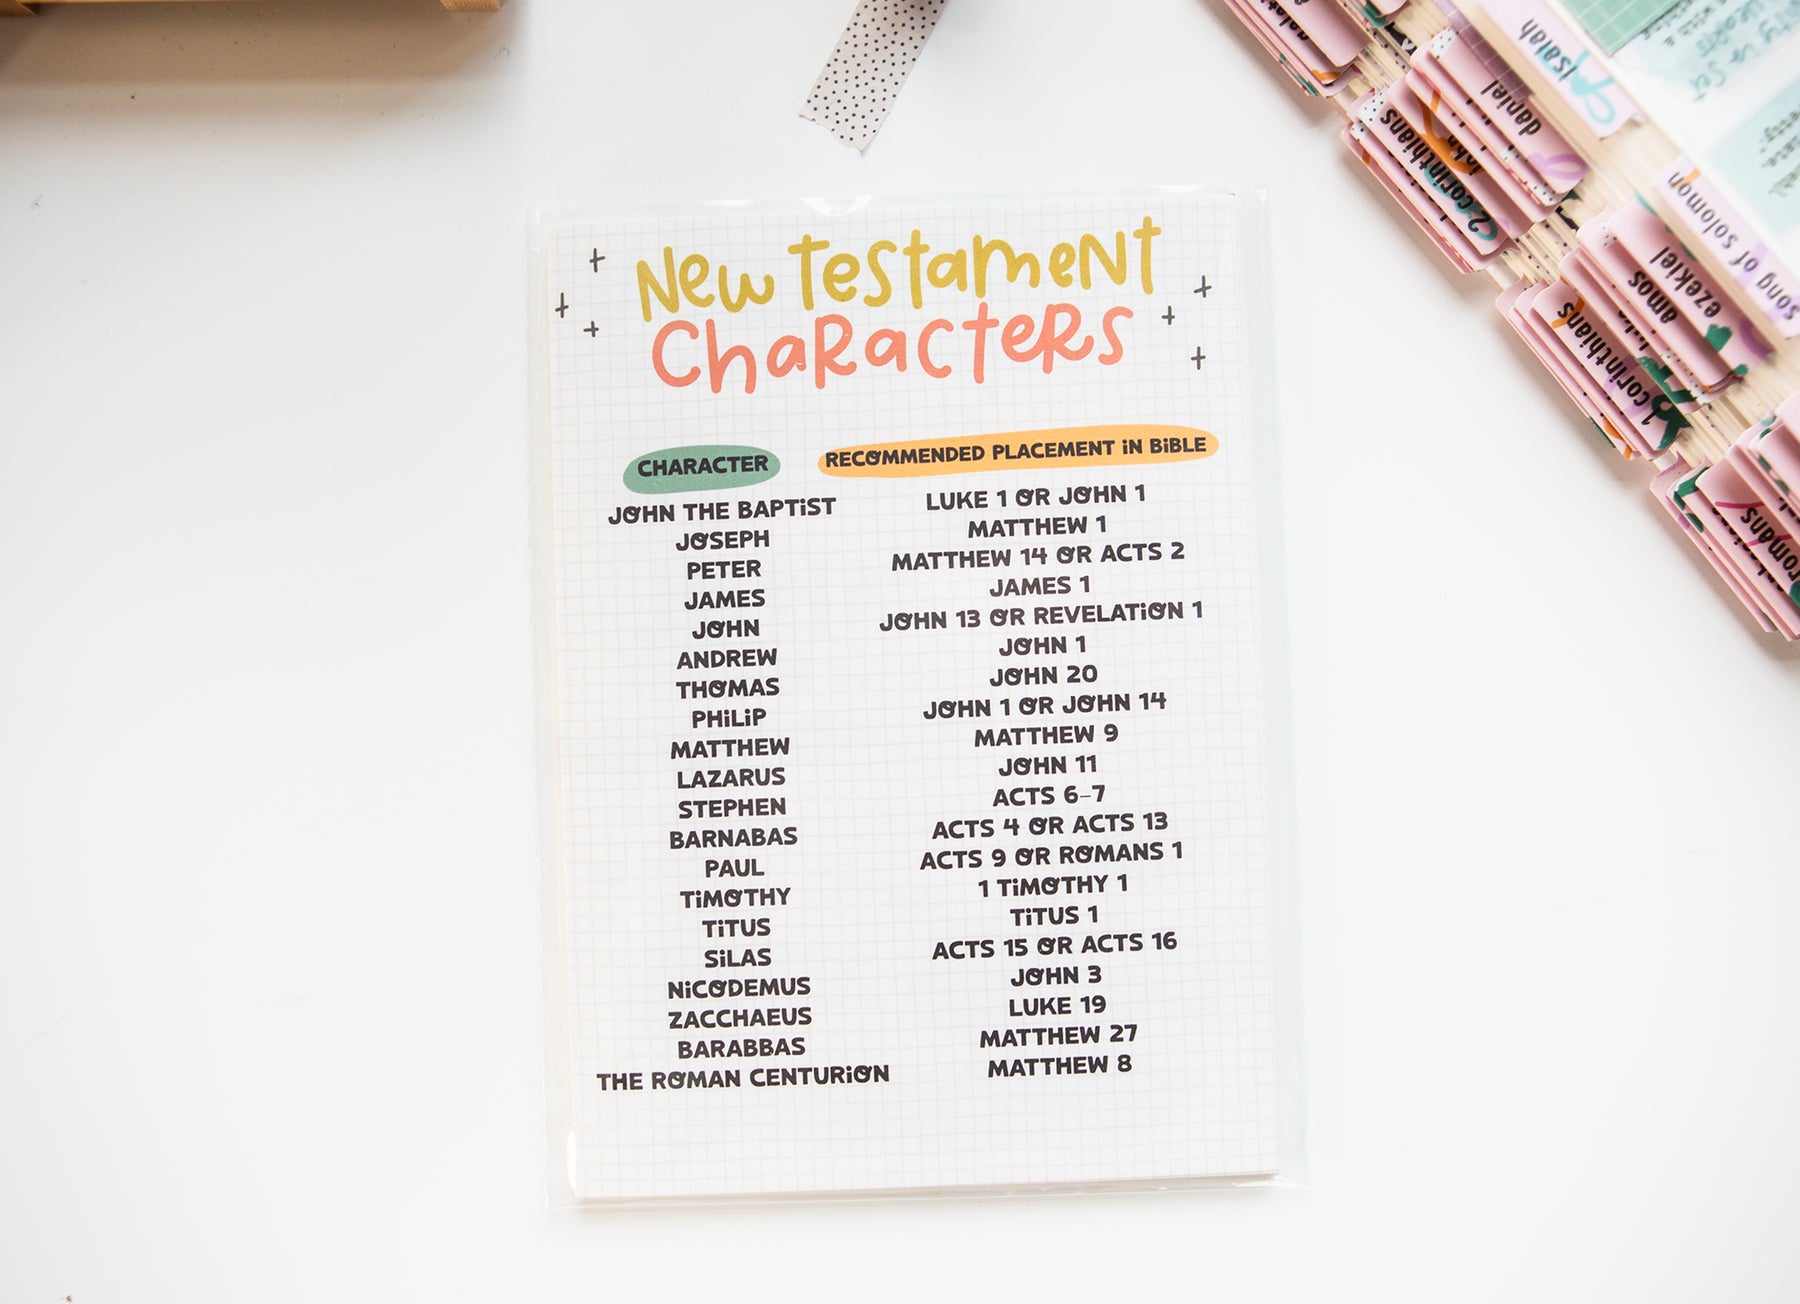 New Testament
Characters
CHARACTER RECOMMENDED PLACEMENT iN BiBLE
JOHN THE BAPTiST LUKE 1 OR JOHN 1
JOSEPH MATTHEW 1
PETER MATTHEW 14 OR ACTS 2
JAMES JAMES 1
JOHN JOHN 13 OR REVELATiON 1
ANDREW JOHN 1
THOMAS JOHN 20
PHiLiP JOHN 1 OR JOHN 14
MATTHEW MATTHEW 9
LAZARUS JOHN 11
STEPHEN ACTS 6–7
BARNABAS ACTS 4 OR ACTS 13
PAUL ACTS 9 OR ROMANS 1
TiMOTHY 1 TiMOTHY 1
TiTUS TiTUS 1
SiLAS ACTS 15 OR ACTS 16
NiCODEMUS JOHN 3
ZACCHAEUS LUKE 19
BARABBAS MATTHEW 27
THE ROMAN CENTURiON MATTHEW 8
Isaiah
daniel
2 corinthians
song of solomon
ezekiel
amos
1 corinthians
romans